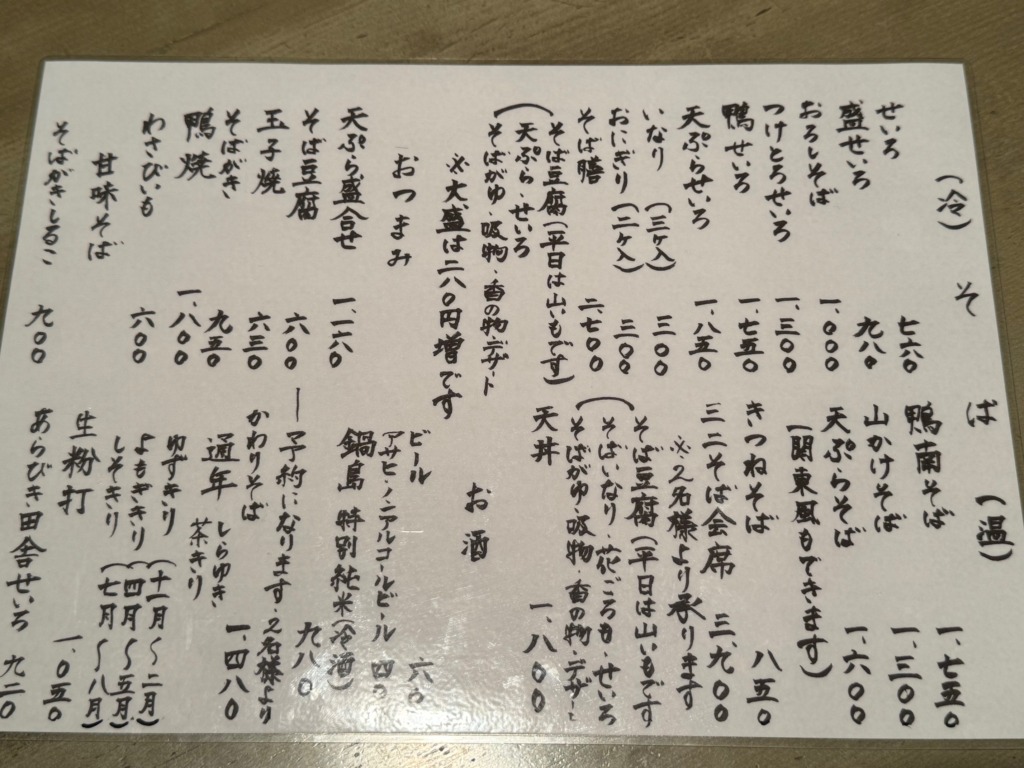 そば
(冷)
せいろ 七六〇
盛せいろ 九八〇
おろしそば 一、〇〇〇
つけとろせいろ 一、三〇〇
鴨せいろ 一、七五〇
天ぷらせいろ 一、八五〇
いなり (三ヶ入) 三〇〇
おにぎり (二ヶ入) 三〇〇
そば膳 二、七〇〇
(そば豆腐(平日は山いもです)
天ぷら せいろ
そばがゆ・吸物・香の物・デザート
※大盛は二八〇円増です
おつまみ
天ぷら盛合せ 一、二六〇
そば豆腐
玉子焼 六〇〇
そばがき 六三〇
鴨焼 九五〇
わさびいも 一、八〇〇
六〇〇
甘味そば
そばがきしるこ 九〇〇
(温)
鴨南そば 一、七五〇
山かけそば 一、三〇〇
天ぷらそば 一、六〇〇
(関東風もできます)
きつねそば 八五〇
三二そば会席 三、九〇〇
※2名様より承ります
(そば豆腐(平日は山いもです
そばいなり・花ごろも・せいろ
そばがゆ・吸物・香の物・デザート
天丼 一、八〇〇
お酒
ビール 六
アサヒ・ノンアルコールビール 四
鍋島 特別純米(冷酒) 九八〇
予約になります・2名様より
かわりそば 一、四八〇
通年 しらゆき
茶きり
ゆずきり (十一月〜二月)
よもぎきり (四月〜五月)
しそきり (七月〜八月)
生粉打 一、〇五〇
あらびき田舎せいろ 九二〇